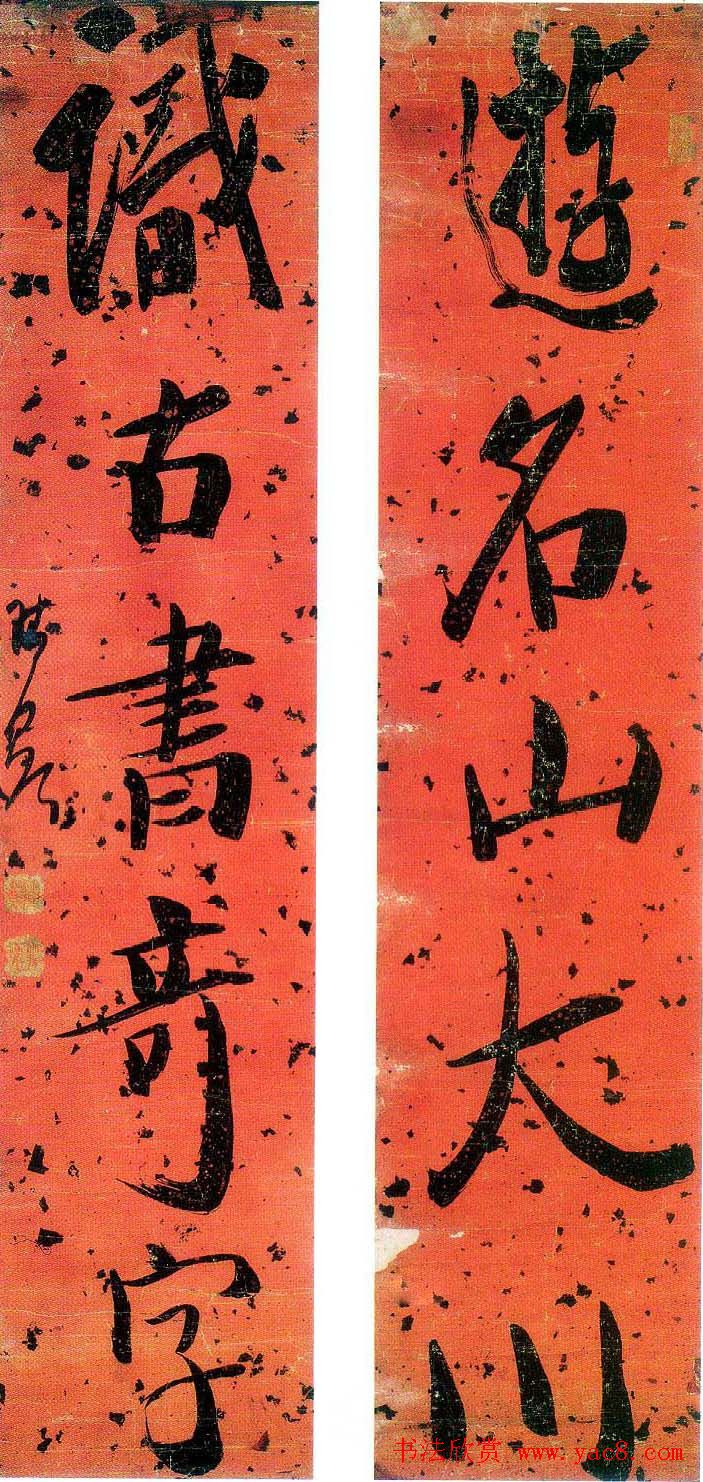 遊名山大川
識古書奇字
陳奕禧
书法欣赏 www.yac8.com